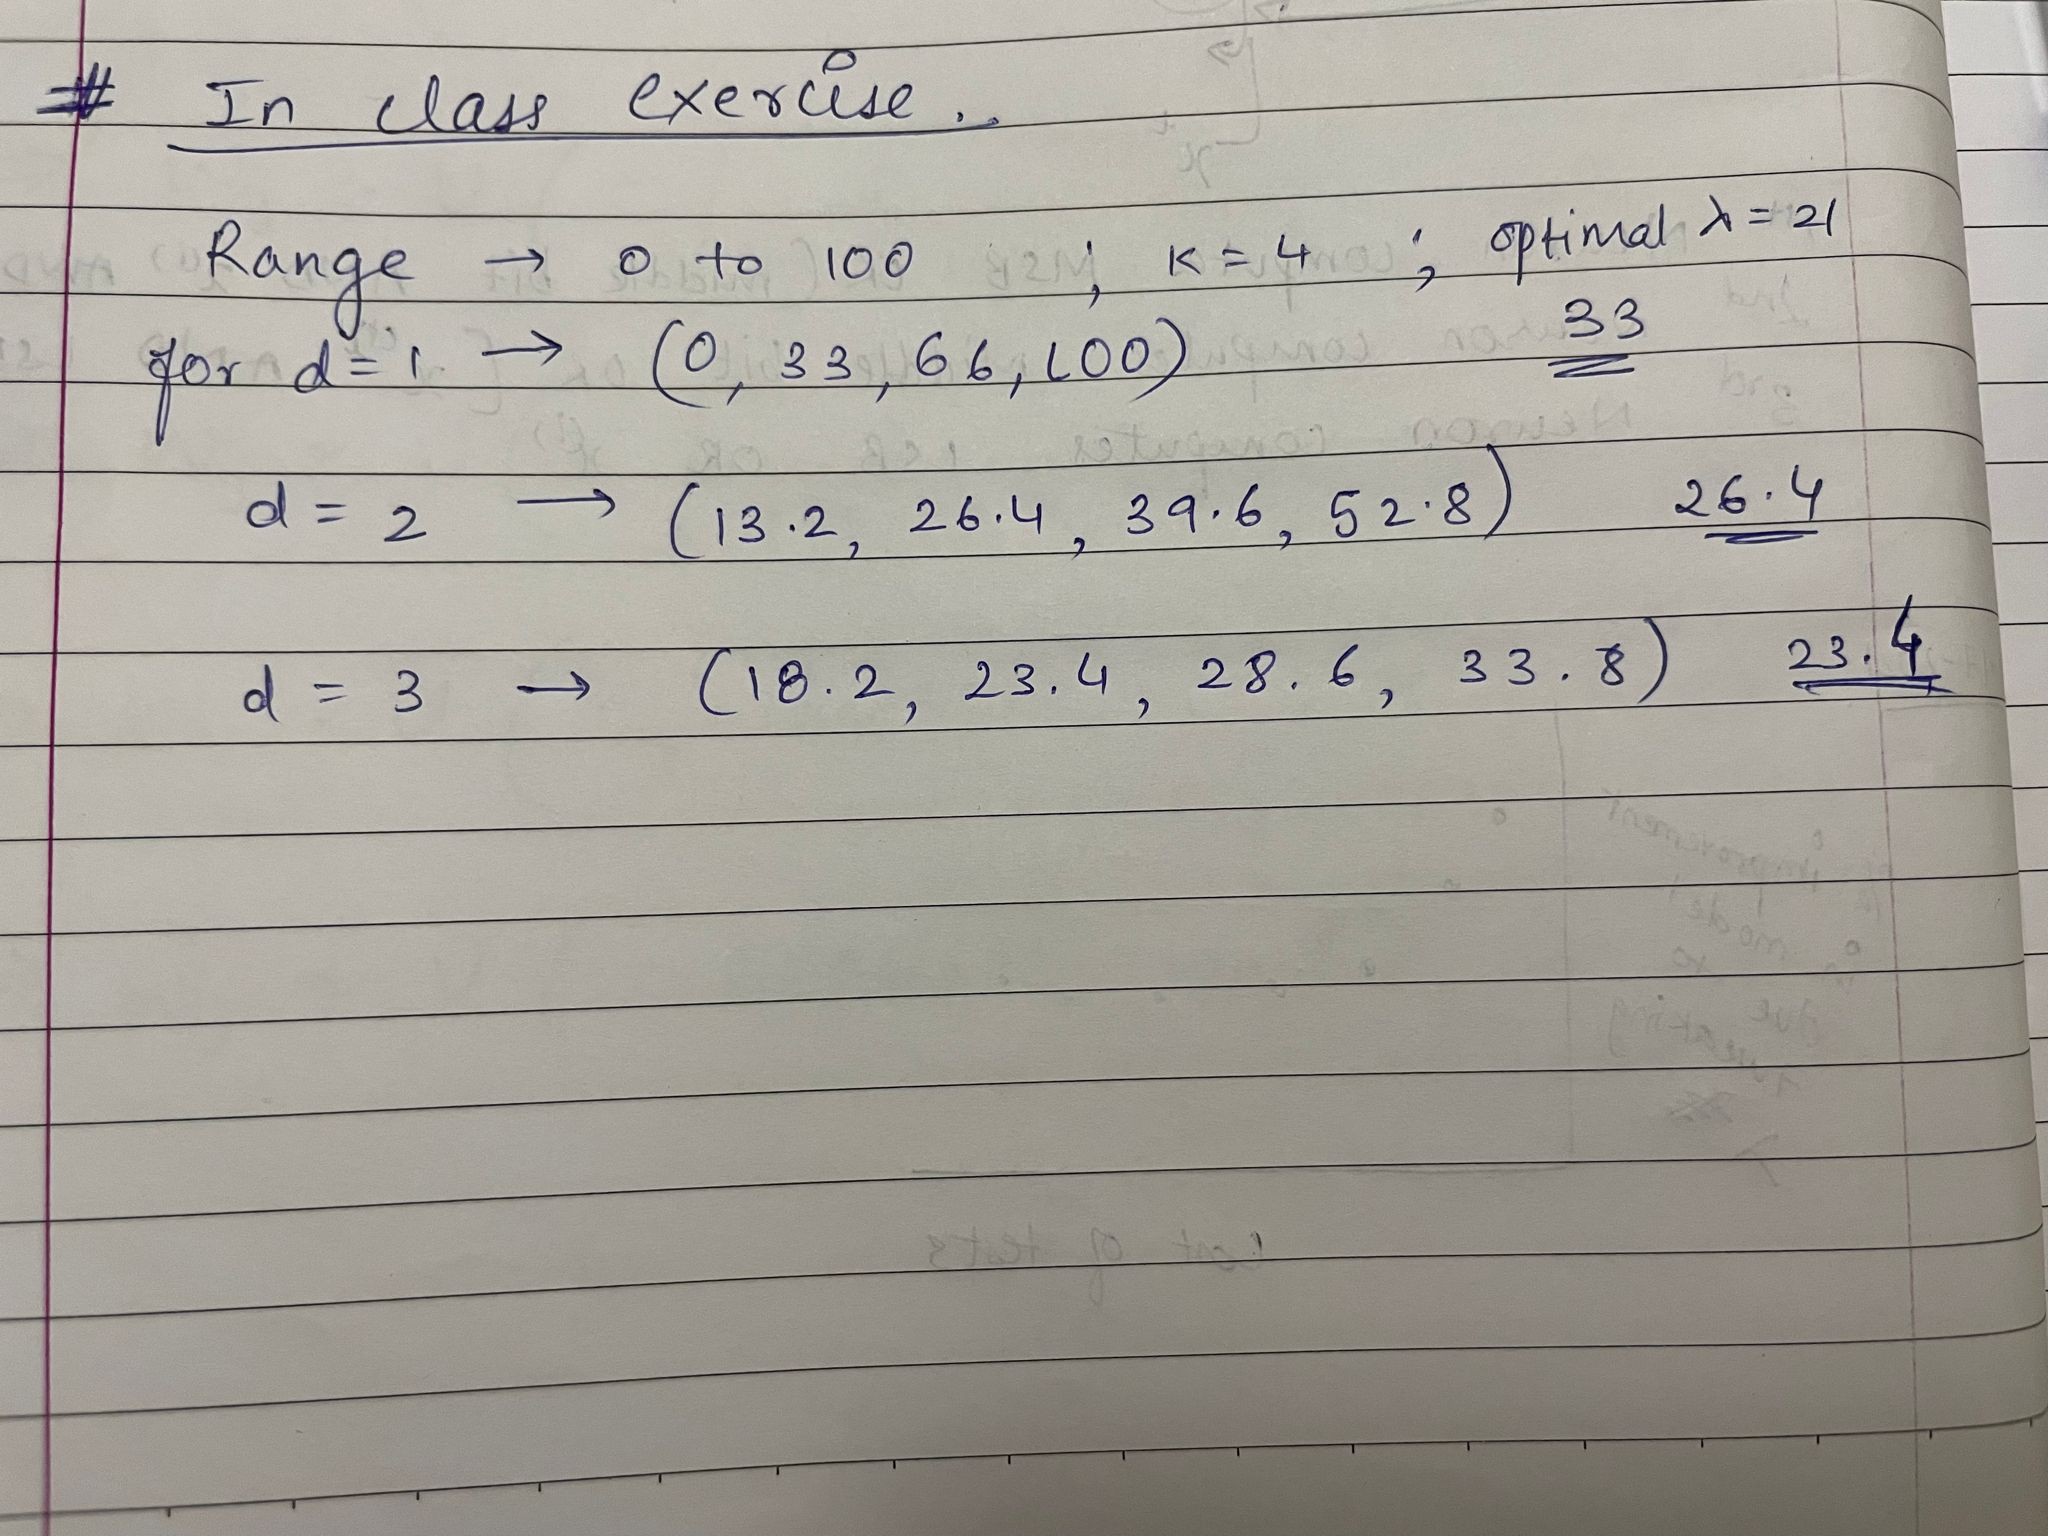 # In class exercise..
Range → 0 to 100 ; K = 4 ; optimal λ = 21
for d = 1 → (0, 33, 66, 100) 33
d = 2 → (13.2, 26.4, 39.6, 52.8) 26.4
d = 3 → (18.2, 23.4, 28.6, 33.8) 23.4